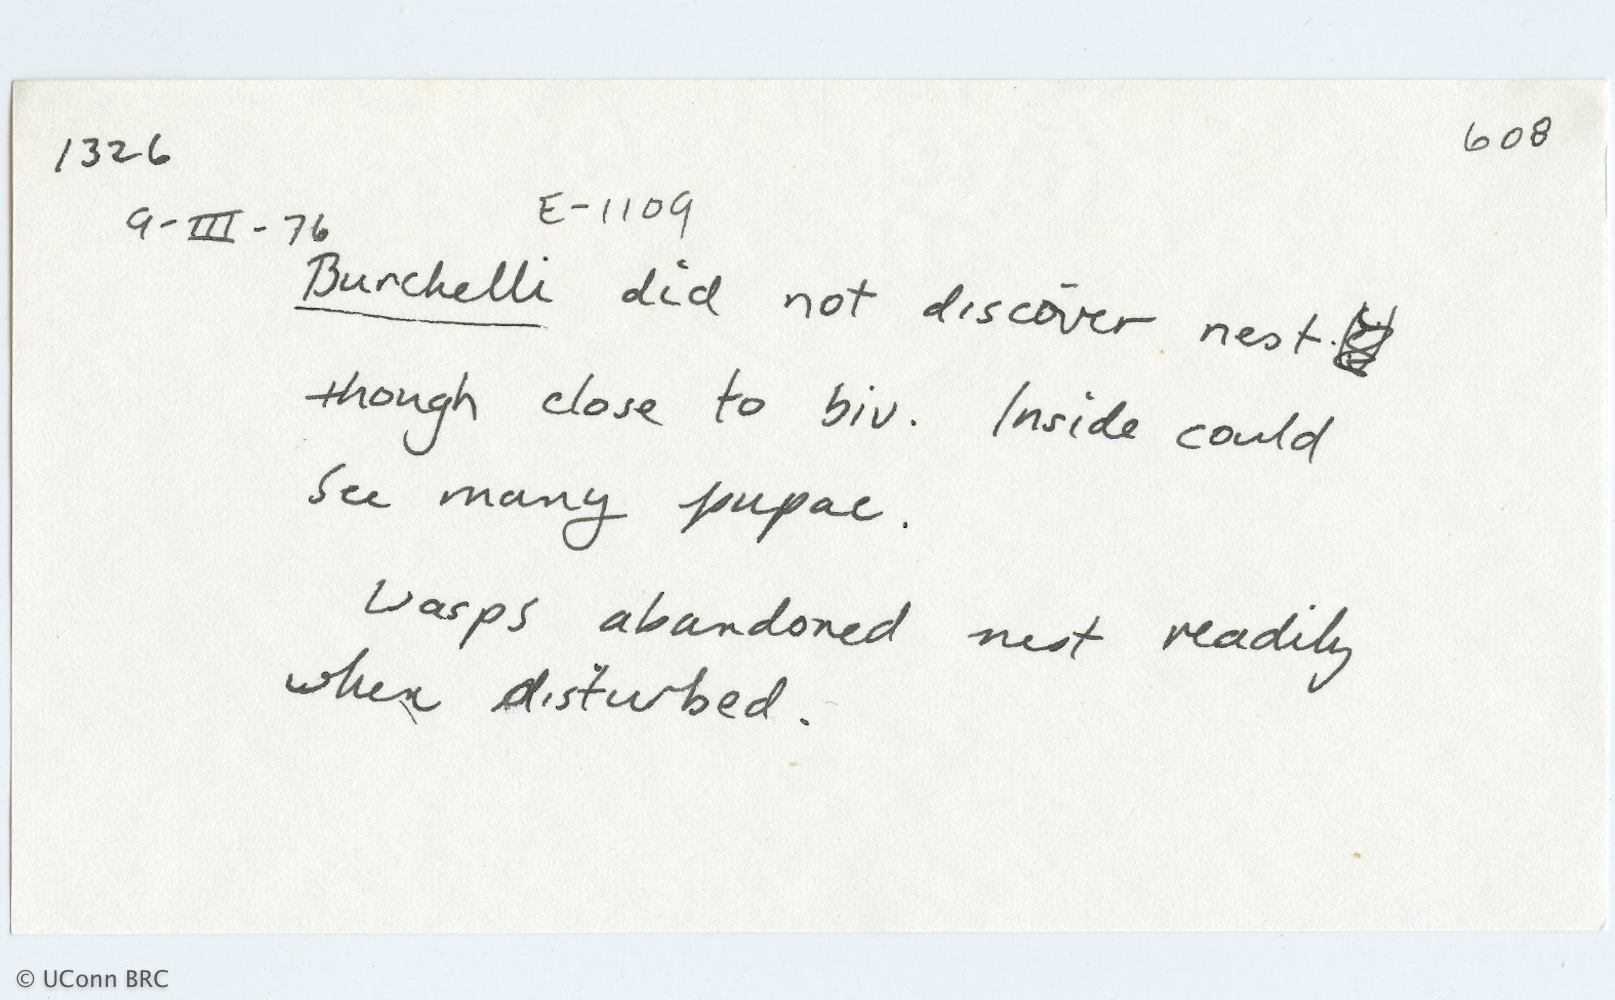 1326
608
9-III-76
E-1109
Burchelli did not discover nest.
though close to biv. Inside could
see many pupae.
Wasps abandoned nest readily
when disturbed.
© UConn BRC